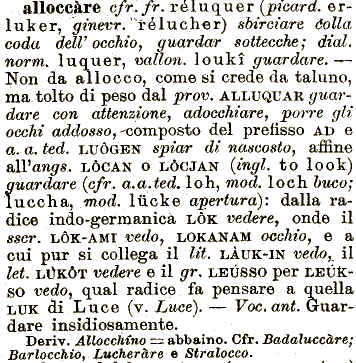 alloccàre cfr. fr. réluquer (picard. er-
luker, ginevr. rélucher) sbirciare colla
coda dell' occhio, guardar sottecche; dial.
norm. luquer, vallon. loukî guardare. —
Non da allocco, come si crede da taluno,
ma tolto di peso dal prov. ALLUQUAR guar-
dare con attenzione, adocchiare, porre gli
occhi addosso, composto del prefisso AD e
a. a. ted. LUÔGEN spiar di nascosto, affine
all'angs. LÔCAN o LÔCJAN (ingl. to look)
guardare (cfr. a.a.ted. loh, mod. loch buco;
luccha, mod. lücke apertura): dalla ra-
dice indo-germanica LÔK vedere, onde il
sscr. LÔK-AMI vedo, LOKANAM occhio, e a
cui pur si collega il lit. LÀUK-IN vedo, il
let. LÙKÔT vedere e il gr. LEÚSSO per LEÚK-
SO vedo, qual radice fa pensare a quella
LUK di Luce (v. Luce). — Voc. ant. Guar-
dare insidiosamente.
Deriv. Allocchíno = abbaino. Cfr. Badaluccàre;
Barlocchio, Lucheràre e Stralocco.